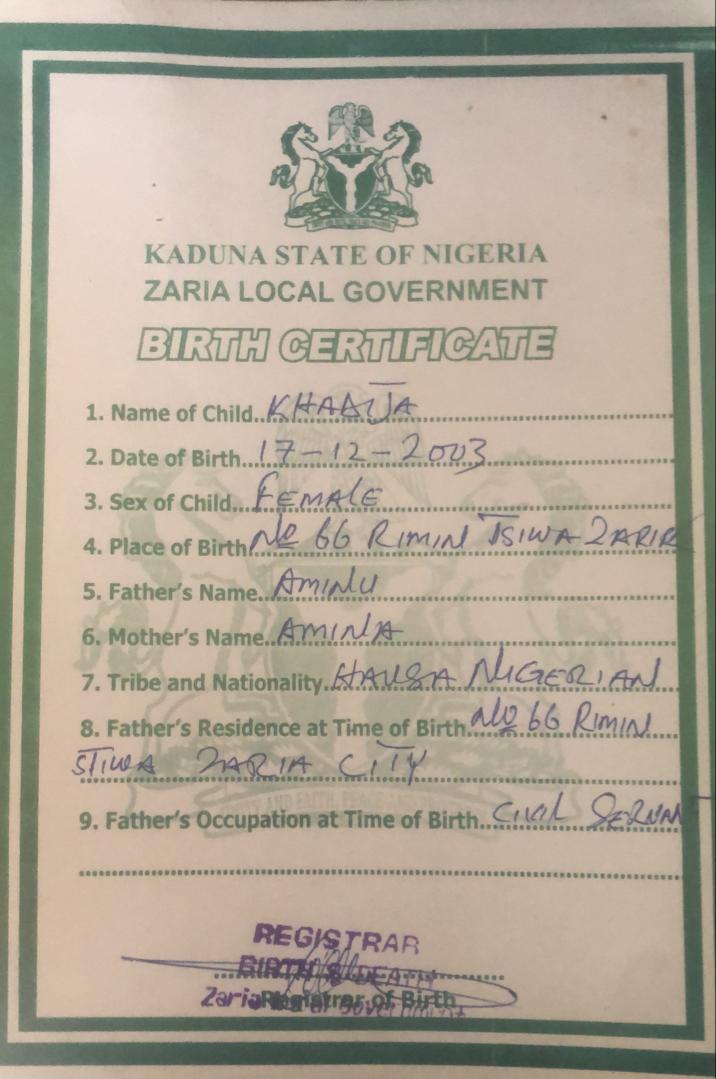 KADUNA STATE OF NIGERIA
ZARIA LOCAL GOVERNMENT
BIRTH CERTIFICATE
1. Name of Child KHADIJA
2. Date of Birth 17-12-2003
3. Sex of Child FEMALE
4. Place of Birth No 66 RIMIN TSIWA ZARIA
5. Father's Name AMINU
6. Mother's Name AMINA
7. Tribe and Nationality HAUSA NIGERIAN
8. Father's Residence at Time of Birth No 66 RIMIN
STIWA ZARIA CITY
9. Father's Occupation at Time of Birth CIVIL SERVANT
REGISTRAR
BIRTH & DEATH
Zaria Local Government
Registrar of Birth